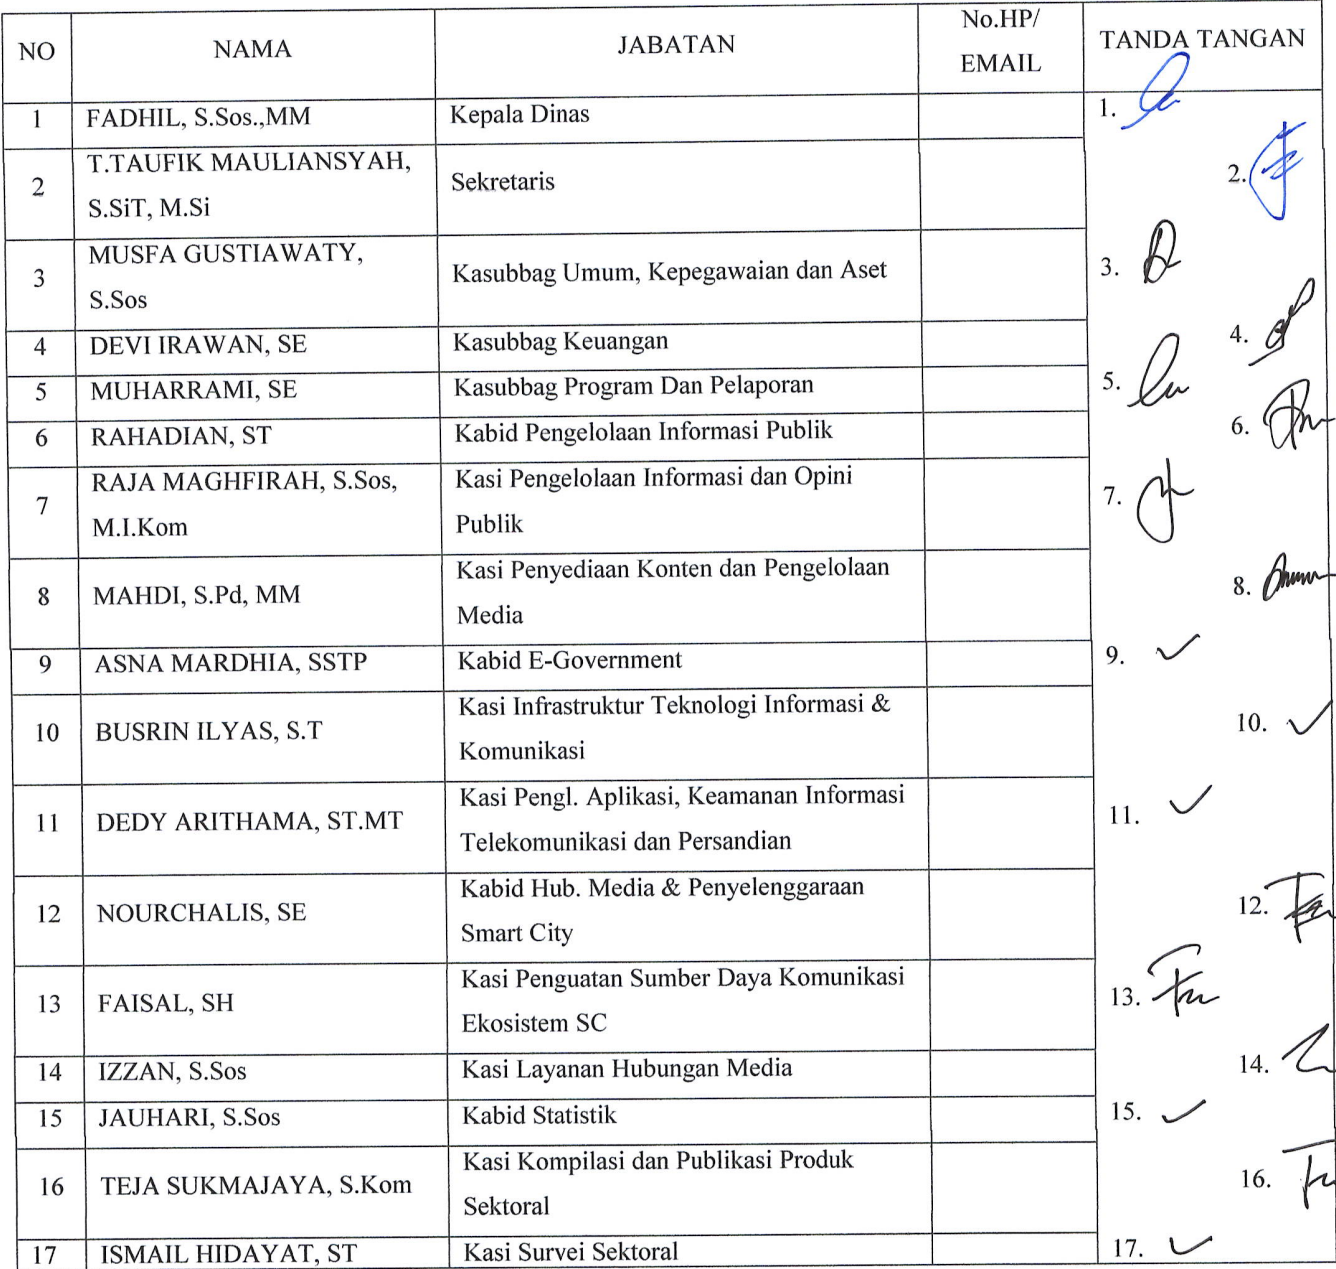 NO NAMA JABATAN No.HP/ EMAIL TANDA TANGAN
1 FADHIL, S.Sos.,MM Kepala Dinas 1.
2 T.TAUFIK MAULIANSYAH, Sekretaris 2.
S.SiT, M.Si
3 MUSFA GUSTIAWATY, Kasubbag Umum, Kepegawaian dan Aset 3.
S.Sos
4 DEVI IRAWAN, SE Kasubbag Keuangan 4.
5 MUHARRAMI, SE Kasubbag Program Dan Pelaporan 5.
6 RAHADIAN, ST Kabid Pengelolaan Informasi Publik 6.
7 RAJA MAGHFIRAH, S.Sos, Kasi Pengelolaan Informasi dan Opini 7.
M.I.Kom Publik
8 MAHDI, S.Pd, MM Kasi Penyediaan Konten dan Pengelolaan 8.
Media
9 ASNA MARDHIA, SSTP Kabid E-Government 9. ✓
10 BUSRIN ILYAS, S.T Kasi Infrastruktur Teknologi Informasi & 10. ✓
Komunikasi
11 DEDY ARITHAMA, ST.MT Kasi Pengl. Aplikasi, Keamanan Informasi 11. ✓
Telekomunikasi dan Persandian
12 NOURCHALIS, SE Kabid Hub. Media & Penyelenggaraan 12.
Smart City
13 FAISAL, SH Kasi Penguatan Sumber Daya Komunikasi 13.
Ekosistem SC
14 IZZAN, S.Sos Kasi Layanan Hubungan Media 14.
15 JAUHARI, S.Sos Kabid Statistik 15. ✓
16 TEJA SUKMAJAYA, S.Kom Kasi Kompilasi dan Publikasi Produk 16.
Sektoral
17 ISMAIL HIDAYAT, ST Kasi Survei Sektoral 17. ✓